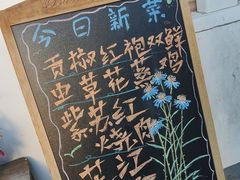 今日新菜
贡椒红袍双鲜
虫草花蒸鸡
紫苏红烧肉
江